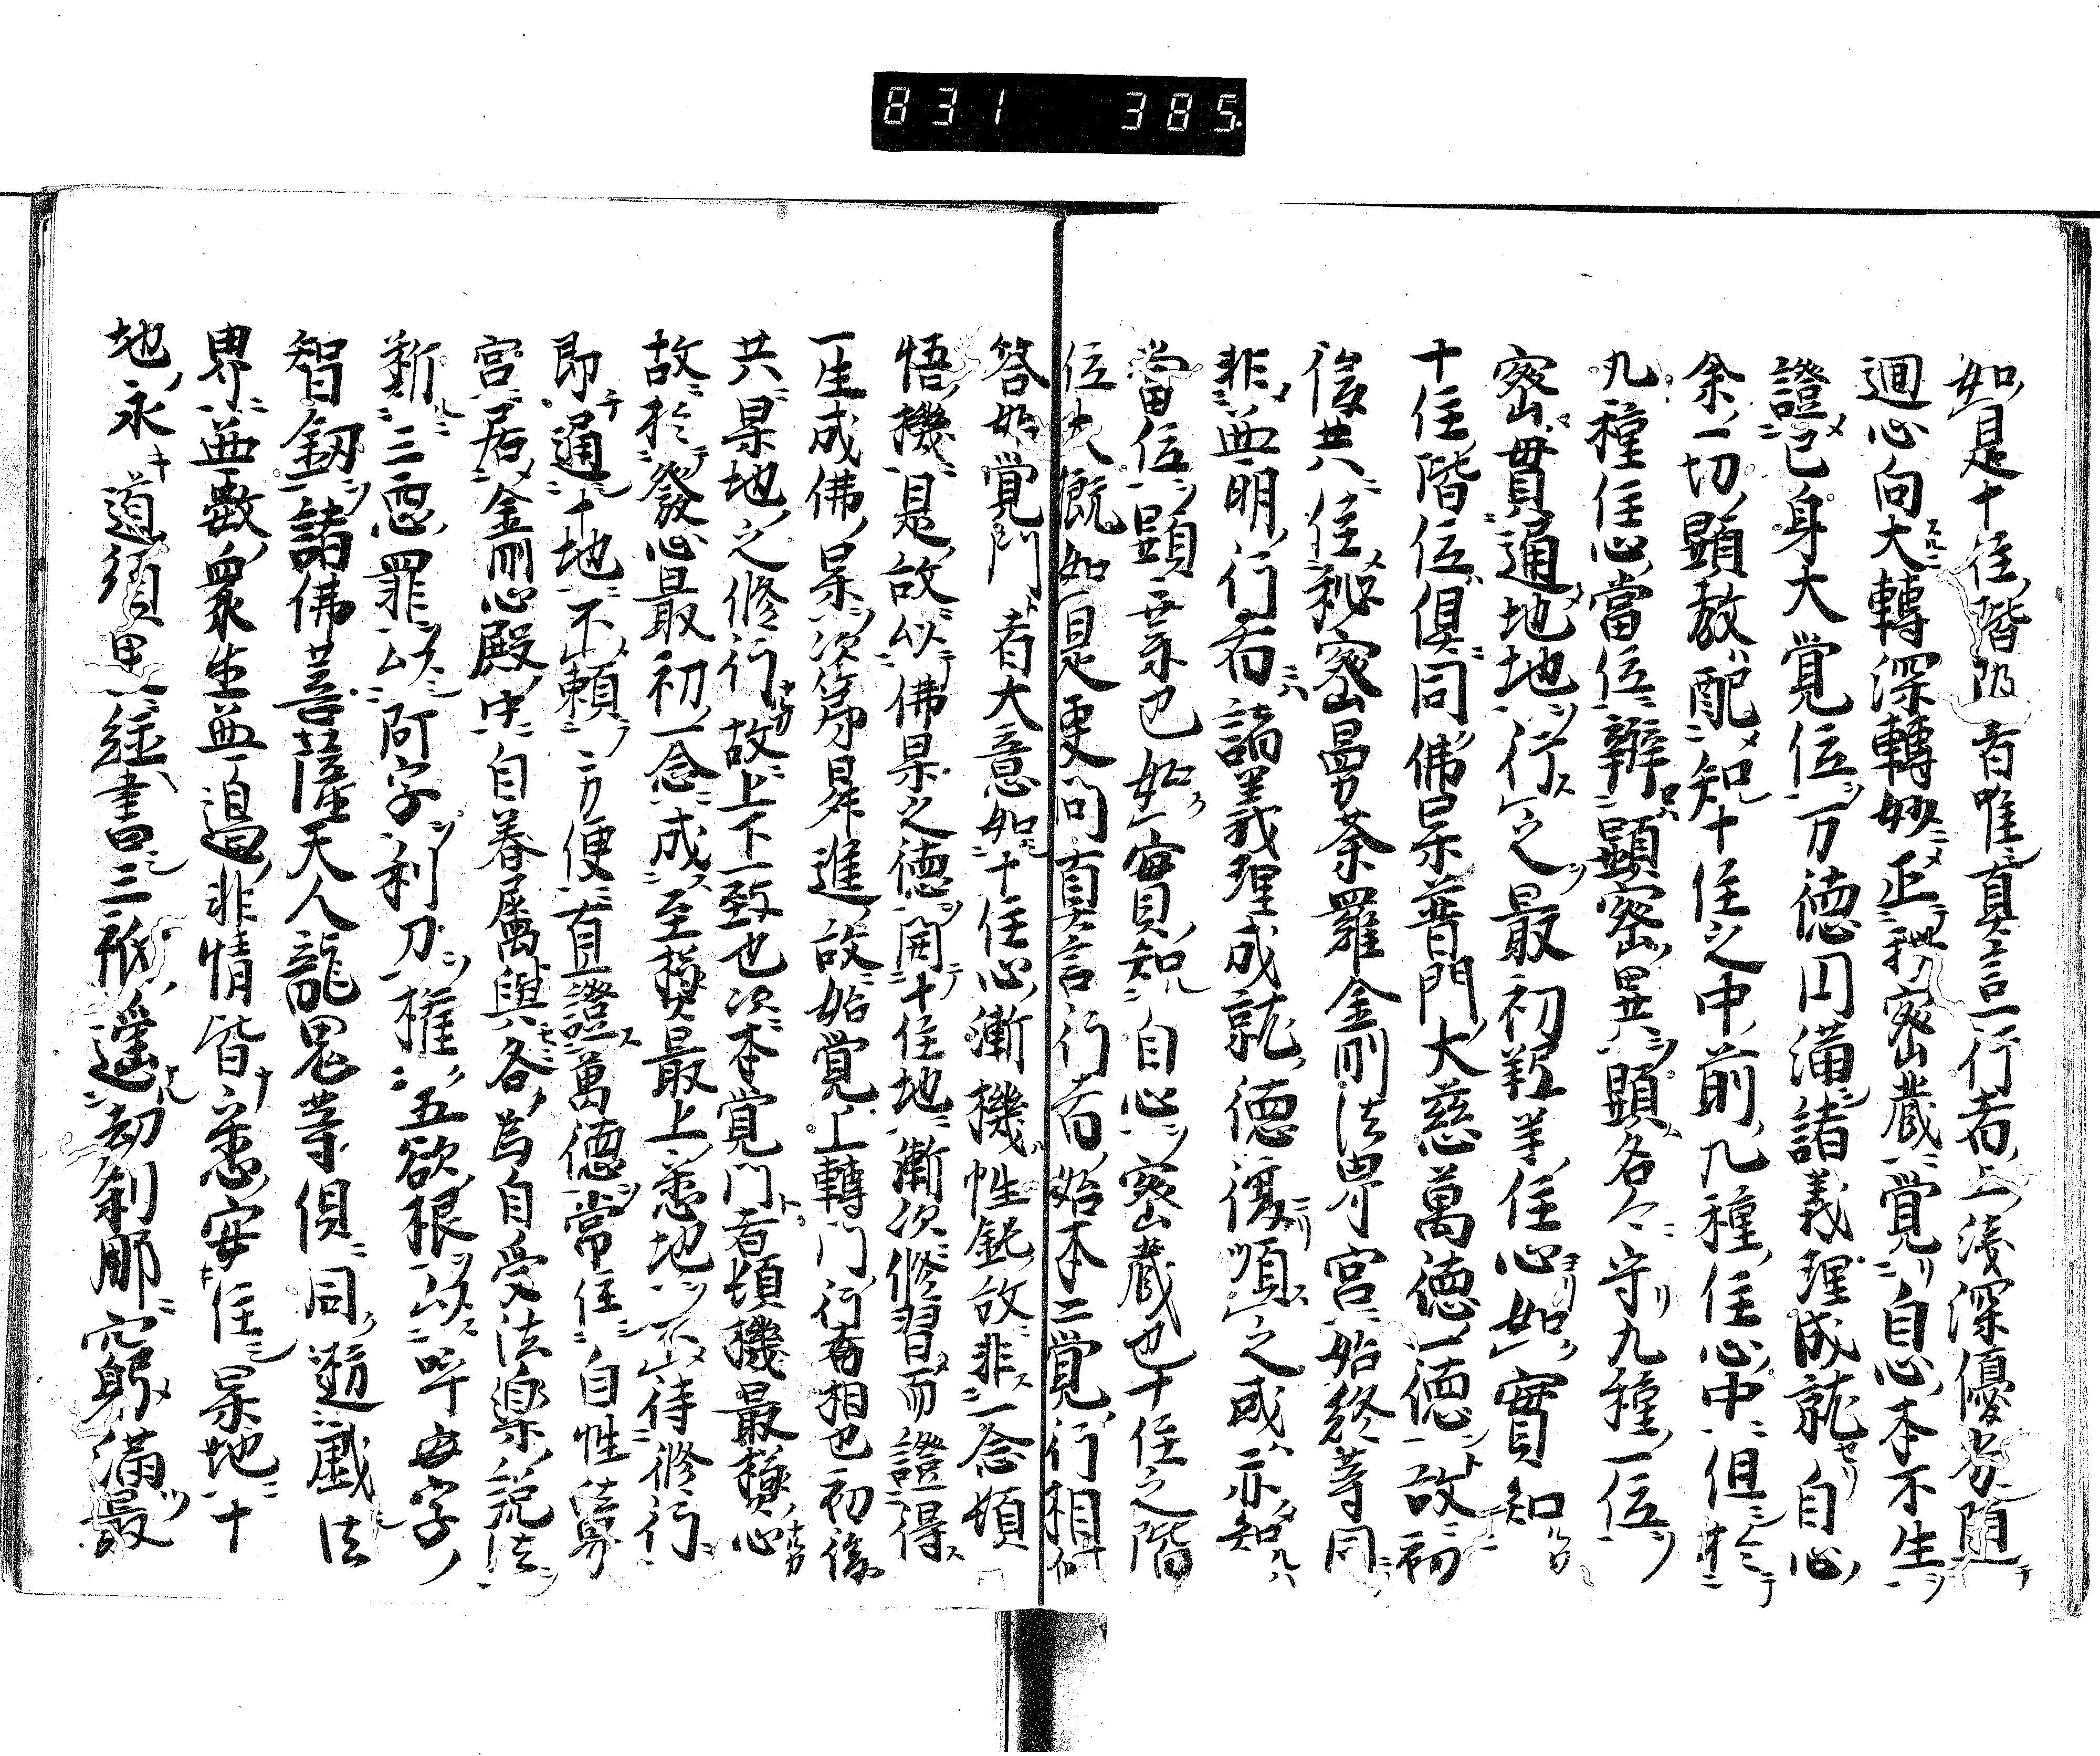 831 385
如是十住階級者唯真言行者上淺深優劣随
迴心向大轉深轉妙正祕密藏覺自心本不生
證已身大覺位万德円滿諸義理成就自心
余一切顕教配知十住之中前九種住心中但於
九種住心當位辨顕密異顕各々守九種一位
密毋貫通地地行之最初羝羊住心如實知
十住階位俱同佛果普門大慈萬德一德故初
後共住秘密曼荼羅金剛法界宮始終等同
非無明行者諸義理成就德復順之或亦知
當位顕示已如實知自心密藏也十住之階
位大概如是更問真言行者始本二覺行相
答始覺門者大意如十住心漸機性鈍故非一念頓
悟機是故以佛果之德開十住地漸次修習而證得
一生成佛果次第昇進故始覺上轉門行者相也初後
共果地之修行故上下一致也次本覺門者頓機最㨗心
故於發心最初一念成至極最上悉地不待修行
即通十地不頼方便直證萬德常住自性法界
宮居金剛心殿中自眷属與各為自受法楽説法
斷三惡罪以阿字利刀摧五欲根以吽字
智釼諸佛菩薩天人龍鬼等俱同遊戲法
界無數衆生無邊非情皆悉安住果地十
地永道須臾經書三祇遥劫刹那窮滿最